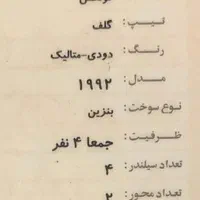 تیپ: گلف
رنگ: دودی-متالیک
مدل: ۱۹۹۲
نوع سوخت: بنزین
ظرفیت: جمعا ۴ نفر
تعداد سیلندر: ۴
تعداد محور: ۲